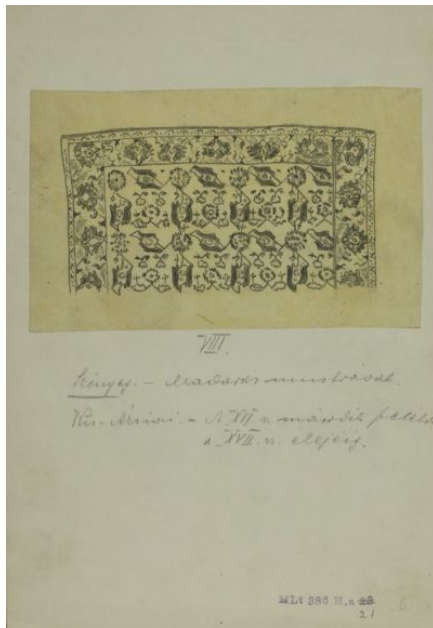 VIII.
Szőnyeg. – Madaras mustrával.
Kis-Ázsiai. – A XVI. sz. második felétől
a XVII. sz. elejéig.
MLt 386 II.a 28
21